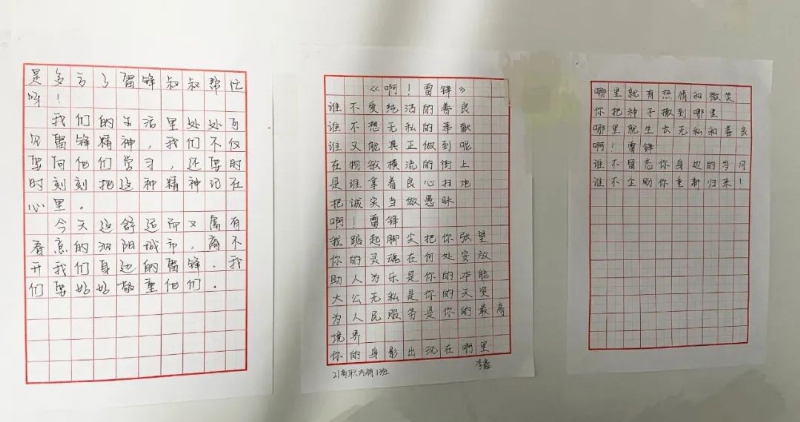 是多亏了雷锋叔叔帮忙
呀！
我们的生活里处处可
见雷锋精神，我们不仅
要向他们学习，还要时
时刻刻把这种精神记在
心里。
今天这舒适而又富有
春意的城市，离不
开我们身边的雷锋，我
们要好好尊重他们。
《啊！雷锋》
谁不爱纯洁的善良
谁不想无私的奉献
谁又能真正做到呢
在物欲横流的街上
是谁拿着良心扫地
把诚实当做愚昧
啊！雷锋
我踮起脚尖把你张望
你的灵魂在何处安放
助人为乐是你的本能
大公无私是你的天灵
为人民服务是你的最高
境界
你的身影出现在哪里
21高职内销1班
李
哪里就有热情和微笑
你把种子撒到哪里
哪里就生出无私和善良
啊！雷锋
谁不留恋你身边的时间
谁不企盼你重新归来！